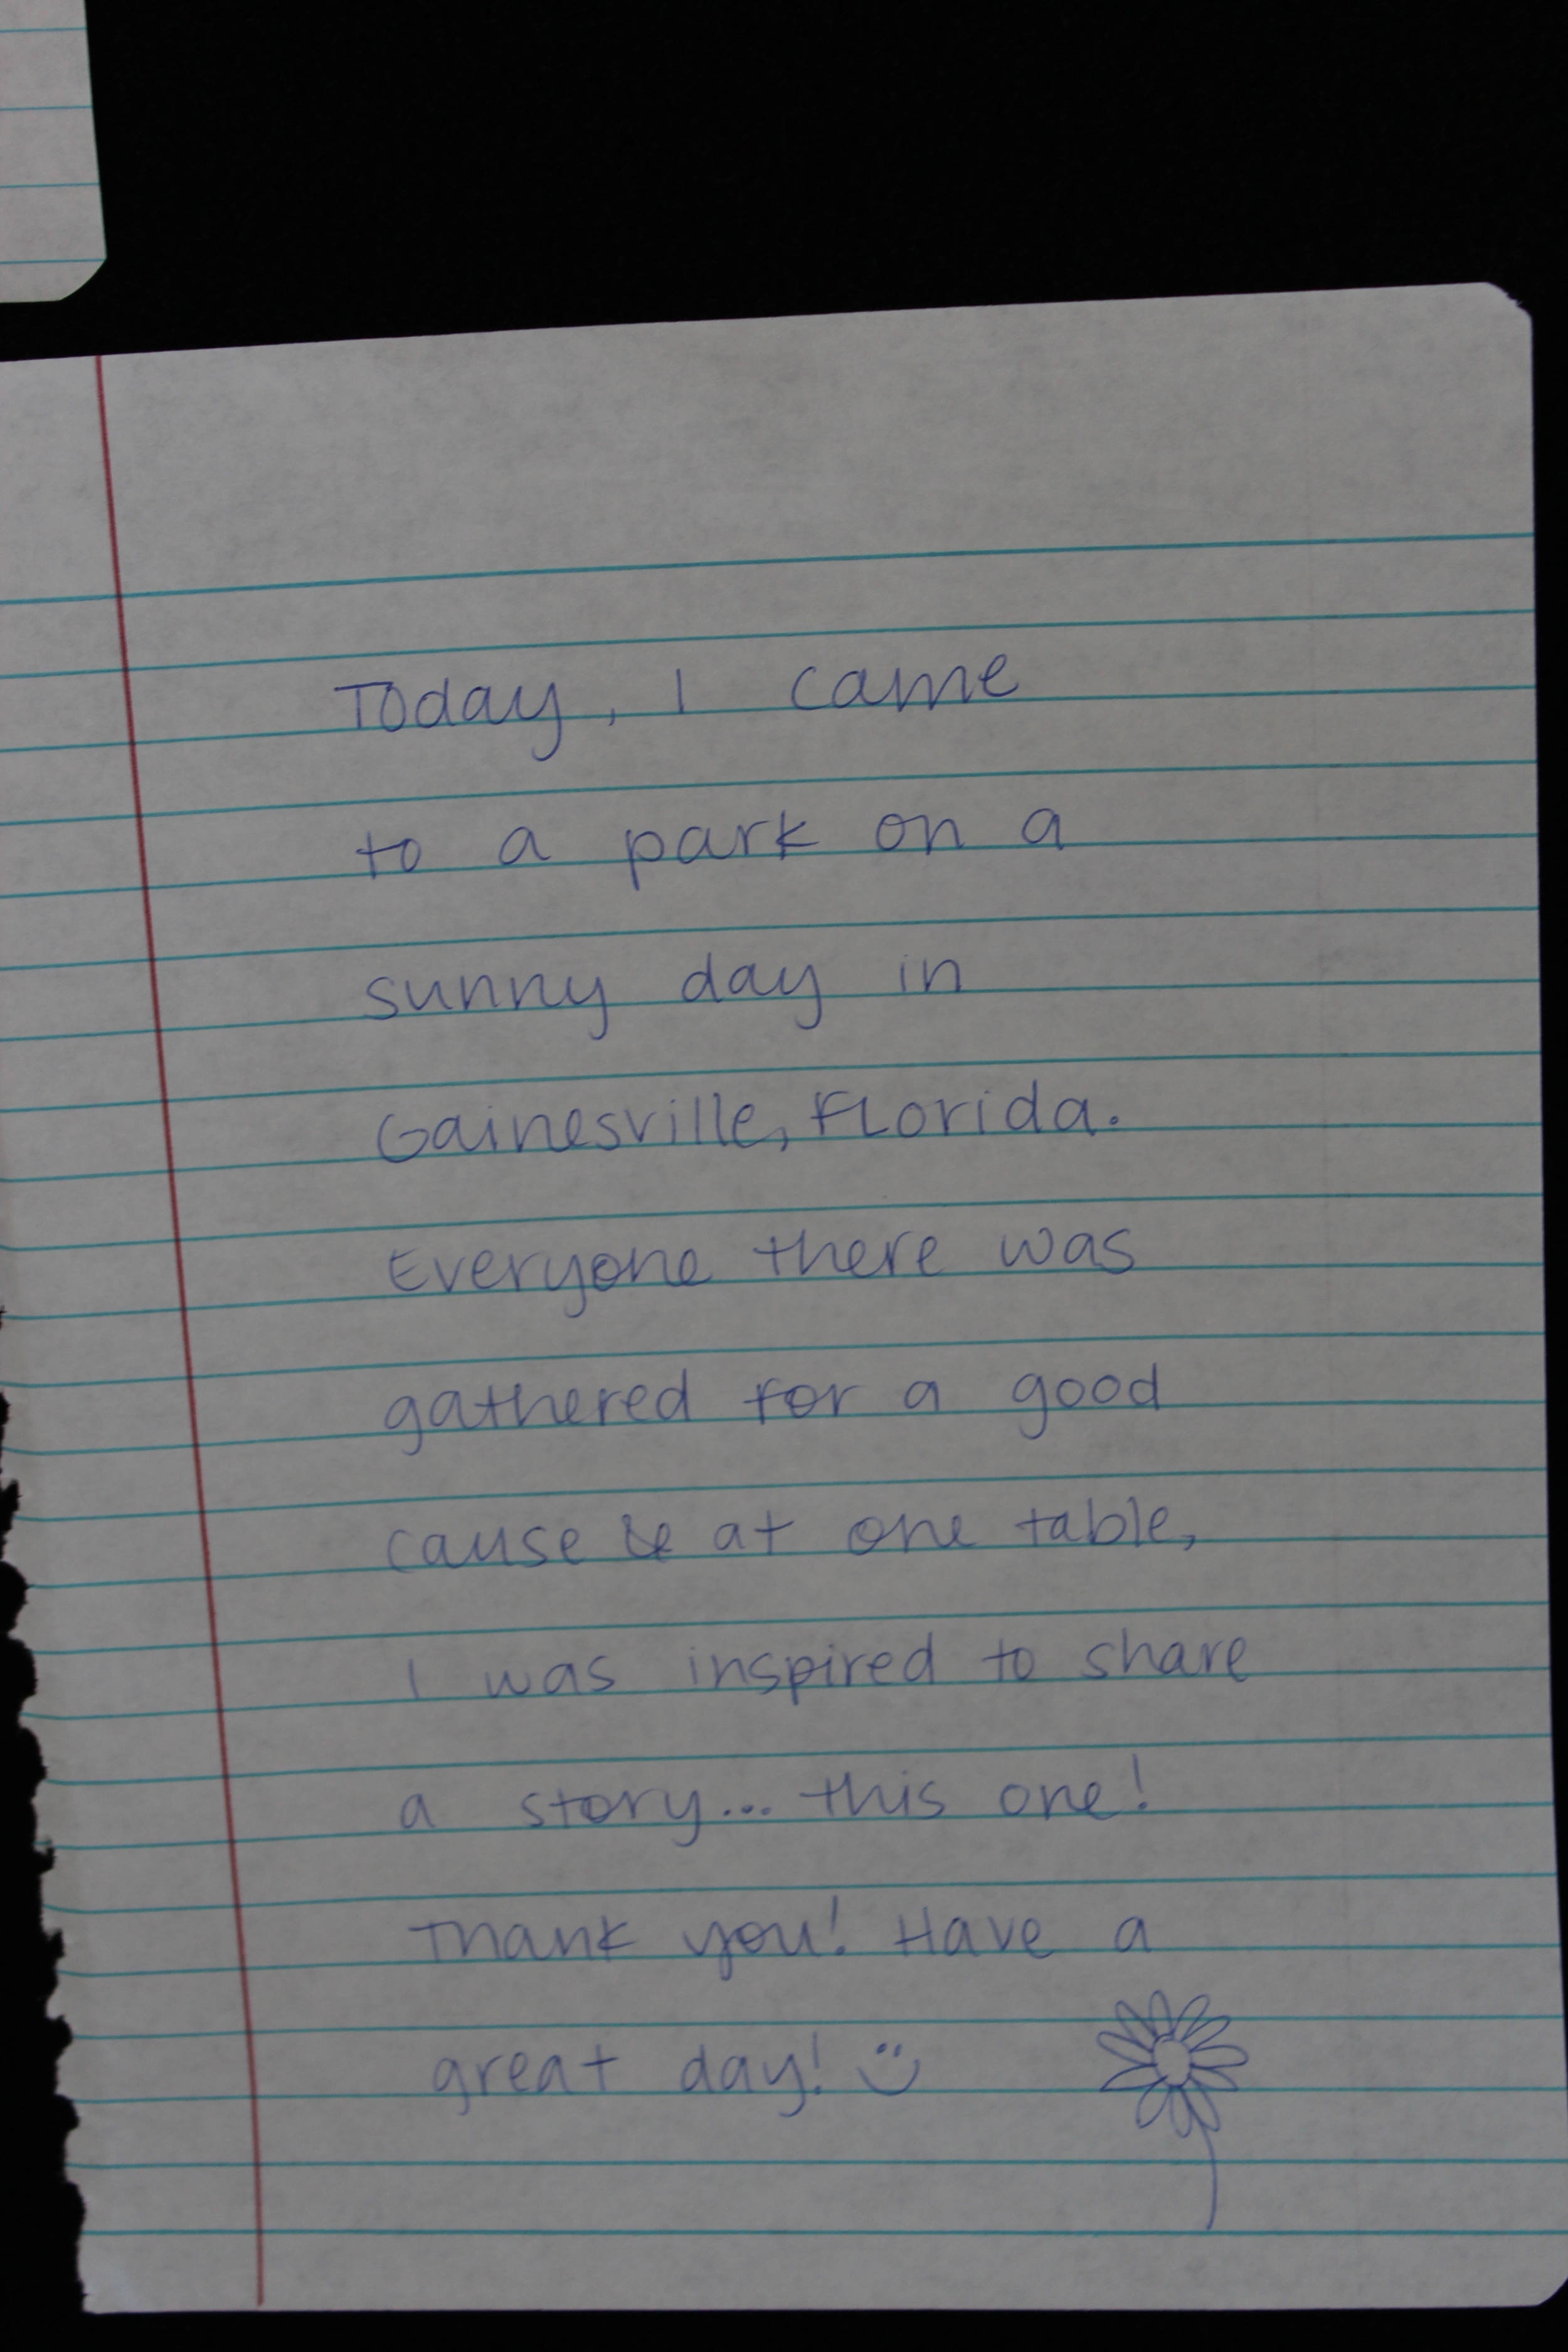 Today, I came
to a park on a
sunny day in
Gainesville, Florida.
Everyone there was
gathered for a good
cause & at one table,
I was inspired to share
a story... this one!
Thank you! Have a
great day! :)